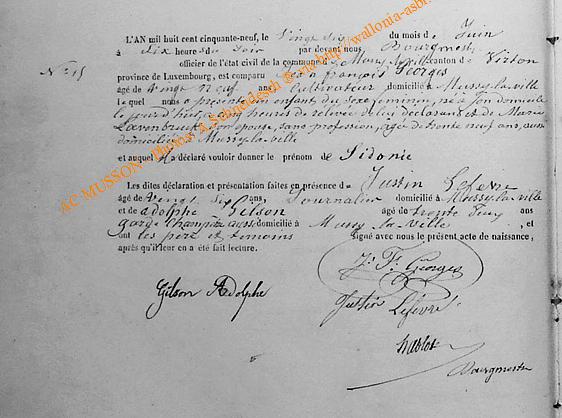 L'AN mil huit cent cinquante-neuf, le Vingt Six du mois de Juin
à Six heures du Soir par devant nous Bourgmestre
officier de l'état civil de la commune de Mussy-la-ville canton de Virton
N° 15
province de Luxembourg, est comparu françois Georges
âgé de Vingt Neuf ans Cultivateur domicilié à Mussy-la-ville
lequel nous a présenté un enfant du Sexe féminin, né à Son domicile
le jour d'hui heures de relevée de lui déclarant et de Marie
Son épouse, sans profession, agée de trente neuf ans, aussi
domiciliée à Mussy-la-ville
et auquel il a déclaré vouloir donner le prénom de Sidonie
Les dites déclaration et présentation faites en présence de Justin Lefevre
âgé de Vingt Six ans Journalier domicilié à Mussy-la-ville
et de Adolphe Gilson âgé de trente ans
garde champêtre aussi domicilié à Mussy-la-Ville, et
ont les père et témoins signé avec nous le présent acte de naissance,
après qu'il leur en a été fait lecture.
J. F. Georges
Gilson Adolphe
Justin Lefevre
Bourgmestre
AC MUSSON - Photos A. Schmickrath @ aria.nc http://wallonia-asbl